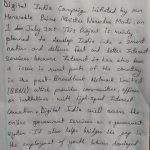 Digital India Campaign initiated by our
Honorable Prime Minister Narendra Modi on
1 July 2015. This Project is mainly
planned to develop India as a smart
nation and deliver fast and better Internet
Services because Internet has also been
a issue in rural parts of the country
is the part Broadband Network Limited
(BBNL) which provides communities, offices
or institutes with high-speed Internet
connection Digital India will ensure the
online government services or e-government
system. It also helps bridge the gap in
the employment of youth between developed